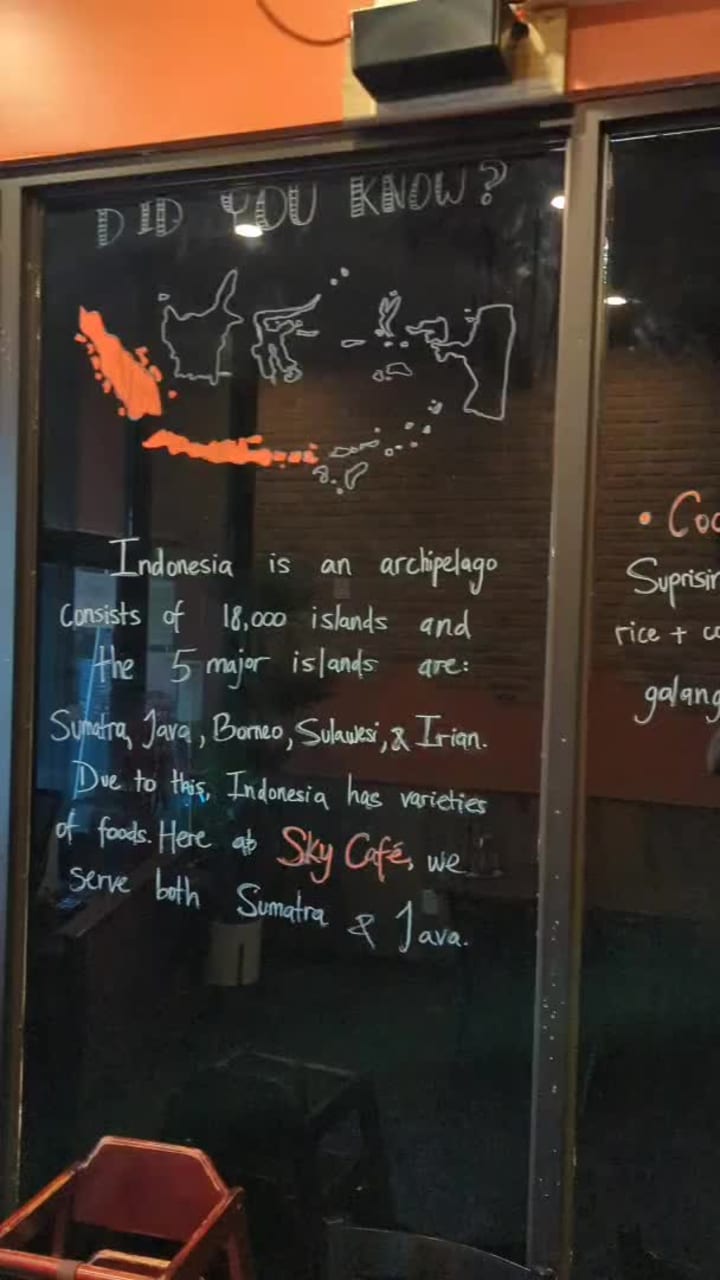 DID YOU KNOW?
Indonesia is an archipelago
consists of 18,000 islands and
the 5 major islands are:
Sumatra, Java, Borneo, Sulawesi, & Irian.
Due to this, Indonesia has varieties
of foods. Here at Sky Café, we
serve both Sumatra & Java.
rice +